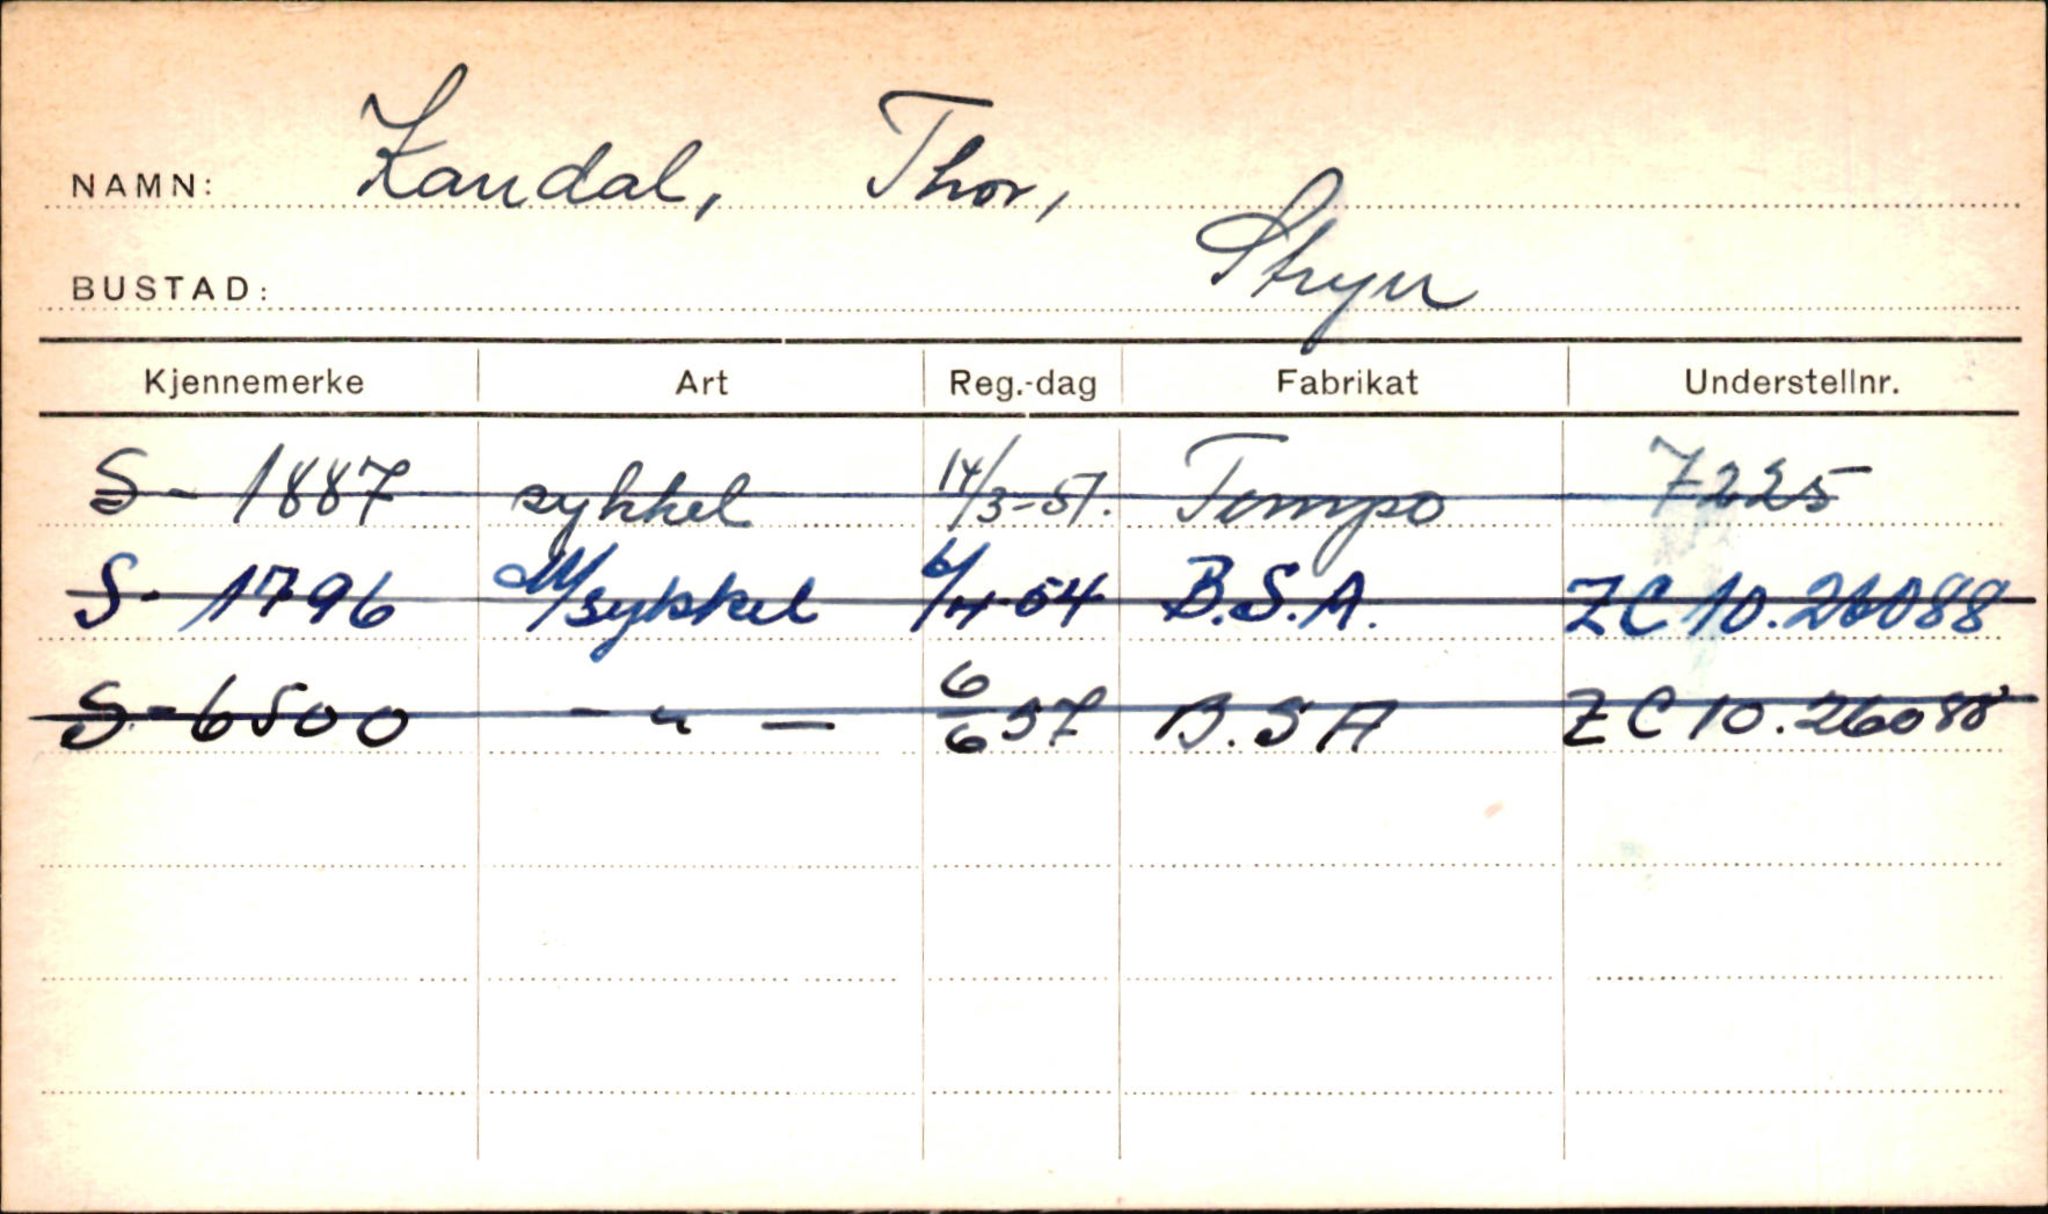 NAMN: Kandal, Thor,
BUSTAD: Stryn
Kjennemerke Art Reg.-dag Fabrikat Understellnr.
S - 1887 sykkel 14/3-51. Tempo 7225
S - 1796 M/sykkel 6/4-54 B.S.A. ZC 10.26088
S - 6500 - " - 6/6 57 B.S A ZC 10.26088